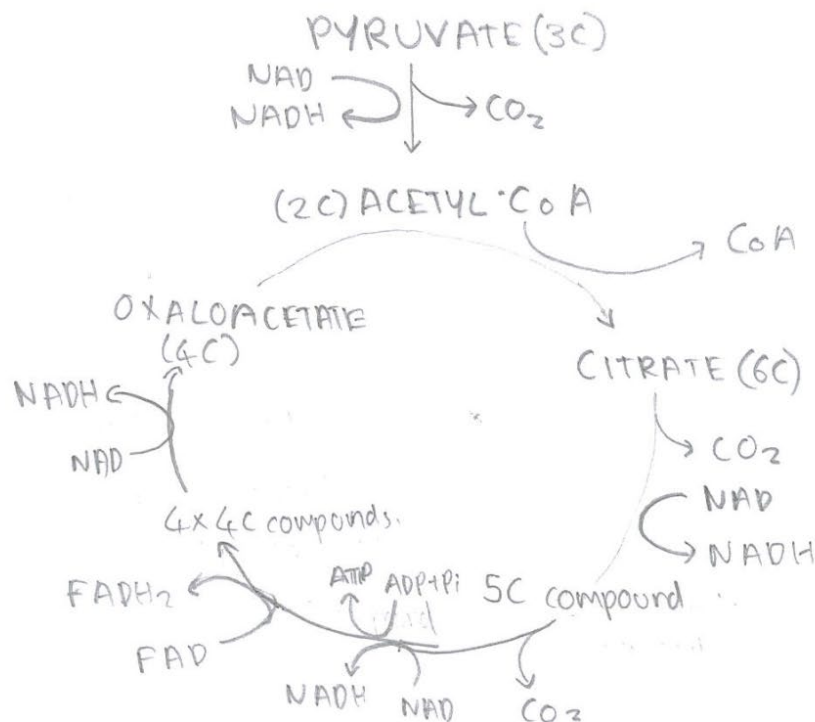 PYRUVATE (3C)
NAD
NADH
CO₂
(2C) ACETYL·CoA
CoA
OXALOACETATE
(4C)
CITRATE (6C)
NADH
CO₂
NAD
NAD
NADH
4x4C compounds.
FADH₂
ATP ADP+Pi 5C compound
FAD
NADH NAD CO₂